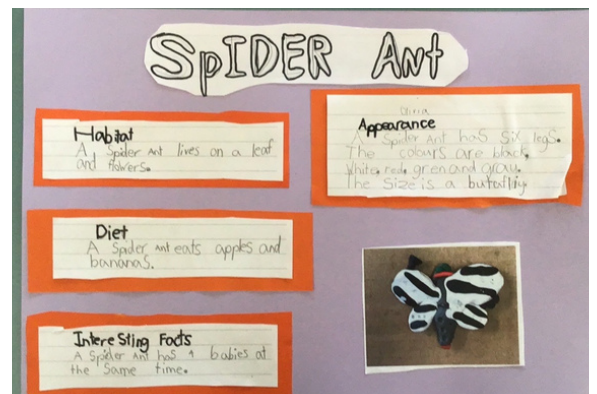 SpIDER Ant
Habitat
A Spider Ant lives on a leaf
and flowers.
Diet
A Spider Ant eats apples and
bananas.
Interesting Facts
A Spider Ant has 4 babies at
the Same time.
Olivia
Appearance
A Spider Ant has Six legs.
The colours are black,
White, red, gren and gray.
The Size is a butterfly.